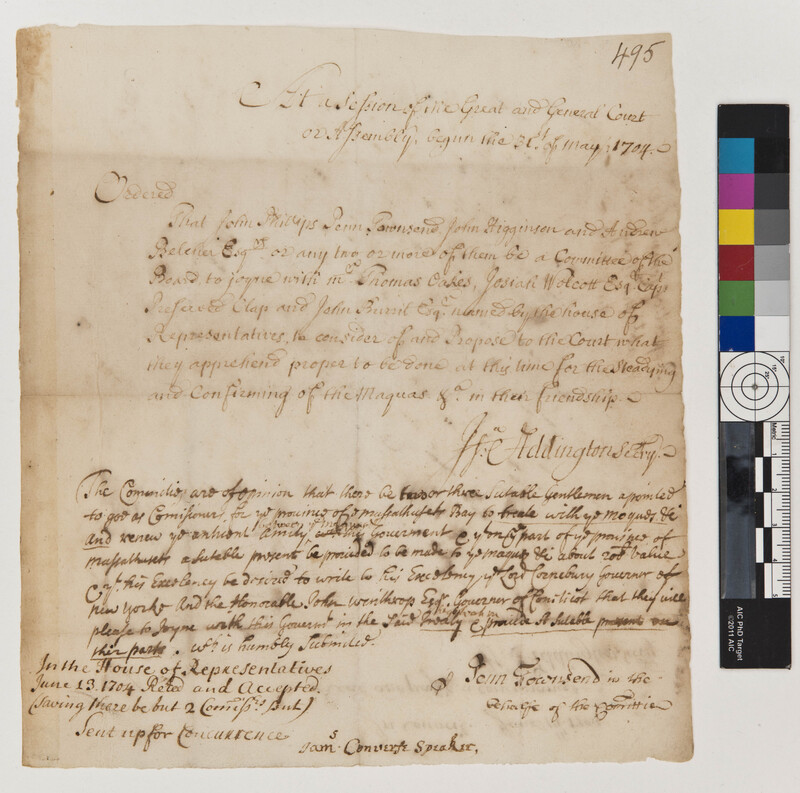 495
At a Session of the Great and General Court
or Assembly, begun the 31st of May, 1704.
Ordered
That John Phillips Penn Townsend, John Higginson and Andrew
Belcher Esqrs or any two or more of them be a Committee of the
Board to joyne with mr Thomas Oakes, Josiah Wolcott Esqr Capt
Preserved Clap and John Burril Esqr named by the house of
Representatives, to consider of and Propose to the Court what
they apprehend proper to be done at this time for the Steadying
and Confirming of the Maquas &c in their friendship.
Isa Addington Secry.
The Committie are of opinion that there be two or three Sutable Gentlemen apointed
to goe as Comissionrs for ye province of ye massathusets Bay to treate with ye moques &c
And renew ye antient Amity with this Goverment & yt on ye part of ye province of
massathusets a sutable present be provided to be made to ye maquas &c about value
& yt his Excelency be desired to write to his Excelency ye Lord Cornebury Governor of
new Yorke And the Honorable John Winthrop Esqr Governor of that they will
please to Joyne with this Governt in the Said Treaty & provide A sutable present on
their parts. wch is humbly Submitted.
In the House of Representatives
June 13. 1704 Read and Accepted.
(Saving there be but 2 Comissrs Sent)
Sent up for Concurrence
Jams Converse Speaker.
Penn Townsend in the
behalfe of the Comittie